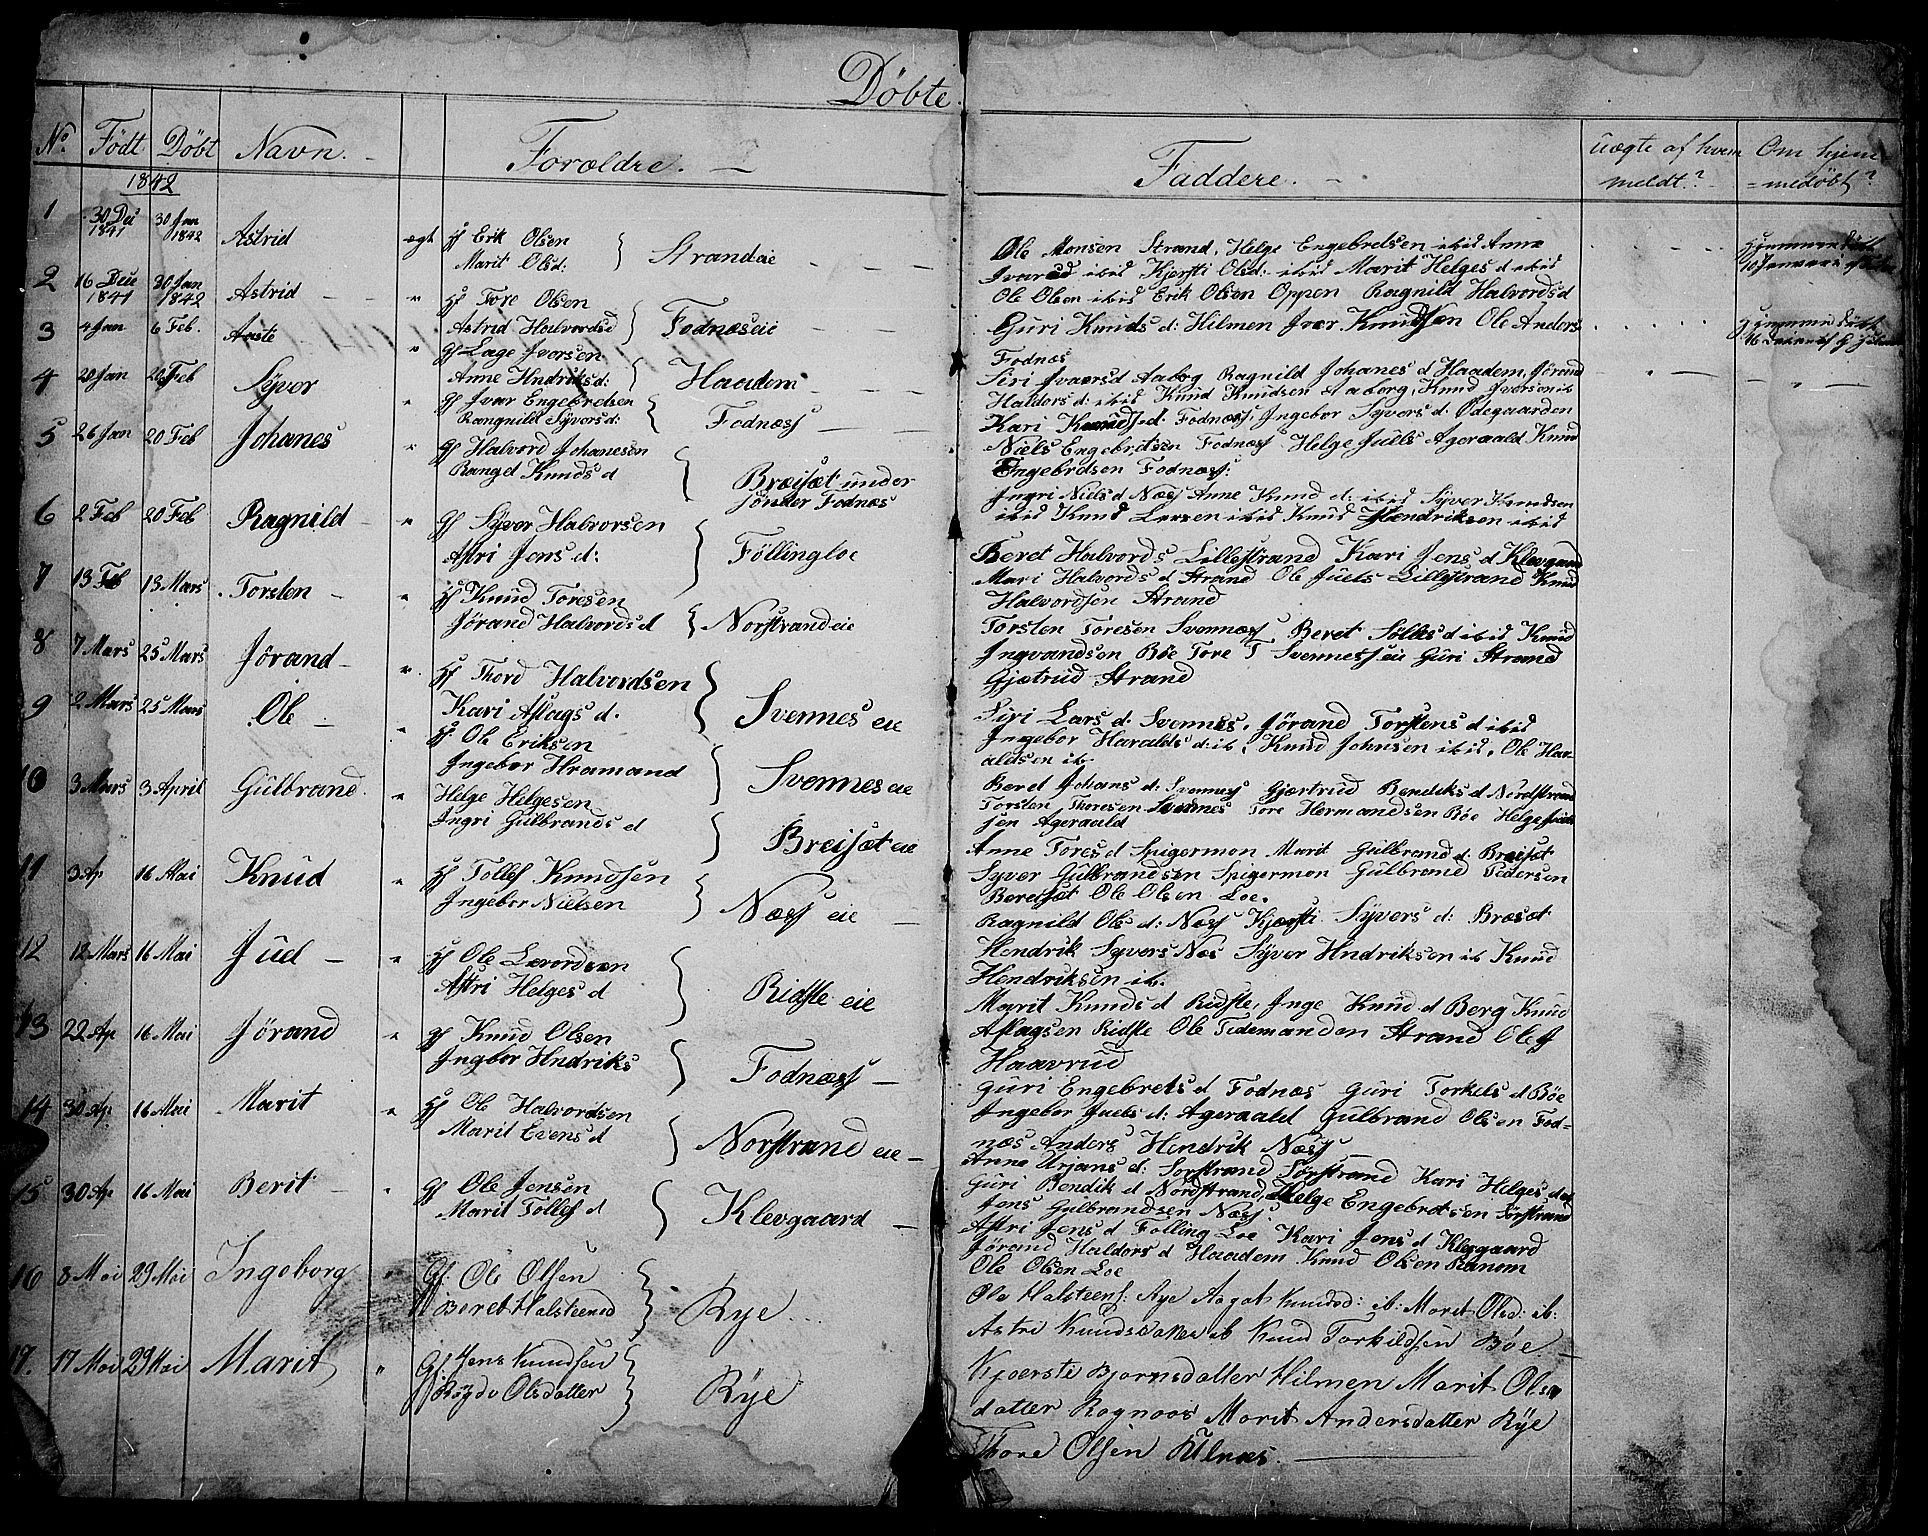 Döbte.
No. Födt Döbt Navn. Forældre. Faddere. Uægte af hvem meldt? Om hjemmedöbt?
1842
1 30 Dec 1841 30 Jan 1842 Astrid ægt Gf Erik Olsen
Marit Olsd: } Strandeie
Ole Monsen Strand, Helge Engebretsen ibid Anne
Ivarsd ibid Kjersti Olsd: ibid Marit Helges d ibid
2 16 Dec 1841 30 Jan 1842 Astrid " Gf Tore Olsen
Astrid Halvordsd } Fodnæseie
Ole Olsen ibid Erik Olsen Oppen Ragnild Halvordsd
Guri Knuds d: Hilmen Ivar Knudsen Ole Anders
Fodnæs
3 4 Jan 6 Feb. Aaste " Gf Lage Ivorsen
Anne Hndriks d: } Haadem
Siri Ivaersd Aaborg Ragnild Johanes d Haadem, Jörand
Haldors d: ibid Knud Knudsen Aaborg, Knud Iversen ib
4 20 Jan 20 Feb Syver " Gf Ivar Engebretsen
Rangnild Syvers d: } Fodness
Kari Knuds d. Fodness, Ingebor Syvers d: Ödegaarden
Niels Engebretsen Fodness Helge Juels Ageraald Knud
Engebretsen Fodness:
5 26 Jan 20 Feb Johanes " Gf Halvord Johanesen
Rangd Knuds d } Breisæt under
sönder Fodnæs
Ingri Niels d Næs Anne Knud d: ibid Syver Knudsen
ibid Knud Larsen ibid Knud Hendriksen ibid
6 2 Feb 20 Feb Ragnild " Gf Syver Halvorsen
Astri Jens d: } Föllingloe
Beret Halvords Lillestrand Kari Jens d Klevgaard
Mari Halvords d Strand Ole Juels Lillestrand Knud
Halvordsen Strand
7 13 Feb 13 Mars Torsten " Gf Knud Toresen
Jörand Halvords d } Norstrandeie
Torsten Toresen Svenness Beret Sölles d ibid Knud
Ingvandsen Böe Tore T Svennesseie Guri Strand
Gjætrud Strand
8 7 Mars 25 Mars Jörand " Gf Thord Halvordsen
Kari Aslags d. } Svennes eie
Siri Lars d. Svennes, Jörand Torstens d ibid
Ingebor Haralds d: ib, Knud Johnsen ibid, Ole Har-
aldsen ib.
9 2 Mars 25 Mars Ole " Gf. Ole Eriksen
Ingebor Hramand } Svennes eie
Beret Johans d: Svenness Gjærtrud Bendiks d Nordstrand
Torsten Thoresen Svennes Tore Hermandsen Böe Helge Juul
sen Ageraald
10 3 Mars 3 April Gulbrand. " Helge Helgesen
Ingri Gulbrands d } Breisæt eie
Anne Tores d Spigermon Marit Gulbrand d. Breisæt
Syver Gulbrandsen Spigermon Gulbrand Pedersen
Beretsæt Ole Olsen Loe.
11 3 Ap 16 Mai Knud " Gf Tollef Knudsen
Ingebor Nielsen } Næss eie
Ragnild Ols d: Næss Kjersti Syvers d: Bræsæt
Hendrik Syvers Næs Syver Hndriksen ib Knud
Hendriksen ib.
12 12 Mars 16 Mai Jud " Gf Ole Levordsen
Astri Helges d } Ridste eie
Marit Knuds d Ridste, Inge Knud d Berg Knud
Aslagsen Ridste Ole Tidemanden Strand Ole J
Haavrud
13 22 Ap 16 Mai Jörand " Gf Knud Olsen
Ingbor Hndriks } Fodness
Guri Engebrets d Fodnæs Guri Torkels d Böe
Ingebor Juels d: Ageraald Gulbrand Olsen Fod-
næs Anders Hendrik Næss
14 30 Ap 16 Mai Marit " Gf Ole Halvordsen
Marit Evens d } Norstrand eie
Anne Urjans d: Sorstrand Sörstrand Kari Helges d ib
Guri Bendik d Nordstrand, Helge Engebretsen Sörstrand
Jens Gulbrandsen Næss.
15 30 Ap 16 Mai Berit " Gf Ole Jensen
Marit Tollef d } Klevgaard
Astri Jens d Folling Loe Kari Jens d Klevgaard
Jörand Haldors d Haadem Knud Olsen Ranum
Ole Olsen Loe
16 8 Mai 29 Mai Ingeborg " Gf. Ole Olsen
Beret Halsteensd } Rye
Ole Halsteens: Rye Aagot Knudsd: ib: Marit Olsd: ib:
Astri Knudsdatter ib Knud Torkildsen Böe
17. 17 Mai 29 Mai Marit " Gf. Jens Knudsen
Olsdatter } Rye
Kjoerste Bjornsdatter Hilmen Marit Ols
datter Rognaas Marit Andersdatter Rye
Thore Olsen Ulnæs.